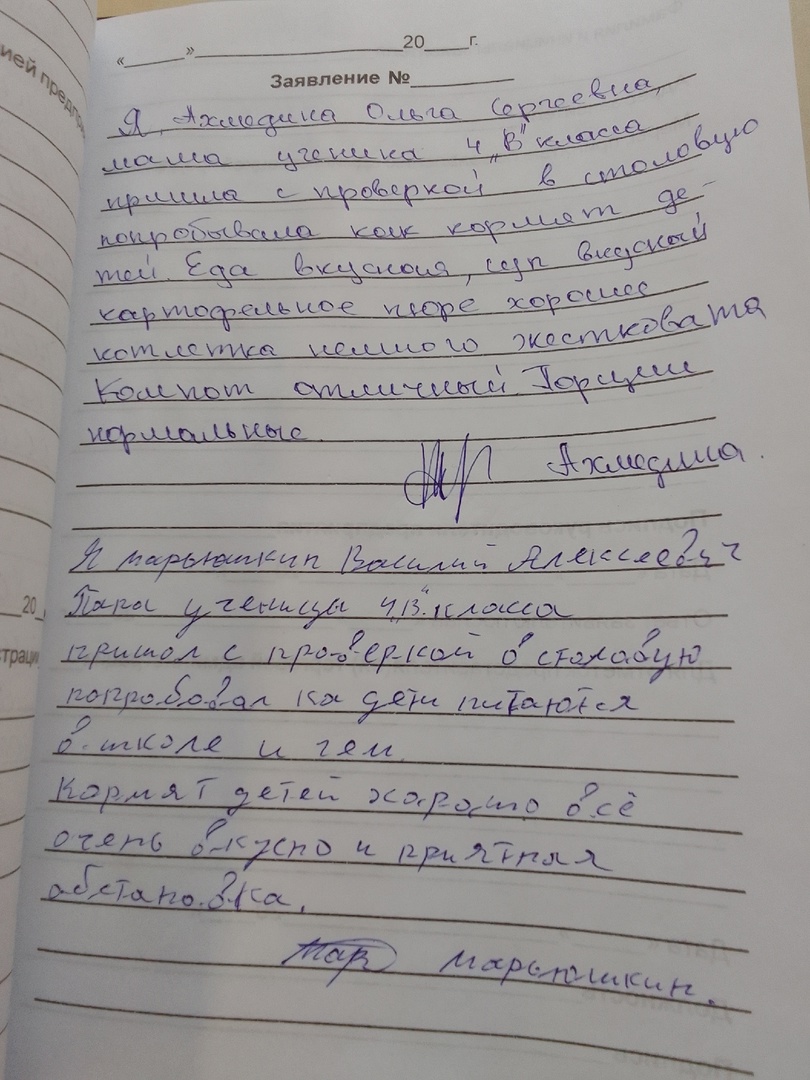 ией предпр
«____»____________20___г.
Заявление №________
Я, Ахмедина Ольга Сергеевна,
мама ученика 4 „В" класса
пришла с проверкой в столовую
попробывала как кормят де-
тей. Еда вкусная, суп вкусный
картофельное пюре хорошее
котлетка немного жестковата
Компот отличный. Порции
нормальные.
Ахмедина.
Я Марьюшкин Василий Алексеевич
Папа ученицы 4„В" класса
пришол с проверкой в столавую
попробовал ка дети питаются
в школе и чем.
Кормят детей харошо всё
очень вкусно и приятная
абстановка.
Мар Марьюшкин.
20
страци